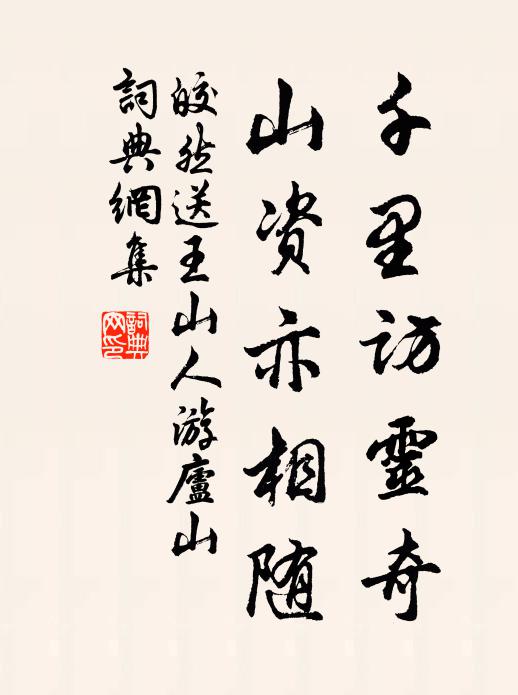 千里訪靈奇
山资亦相随
皎然送王山人游廬山
詞典網集
詞典
网印